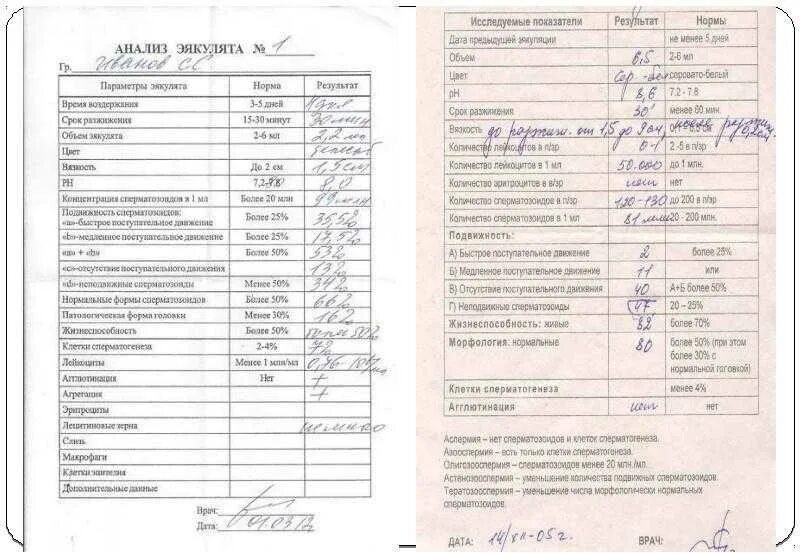 АНАЛИЗ ЭЯКУЛЯТА № 1
Гр. Иванов СС
Параметры эякулята Норма Результат
Время воздержания 3-5 дней 4 дня
Срок разжижения 15-30 минут 30 мин
Объем эякулята 2-6 мл 2,2 мл
Цвет
Вязкость До 2 см 1,5 см
РН 7,2-7,8 8,0
Концентрация сперматозоидов в 1 мл Более 20 млн 99 млн
Подвижность сперматозоидов:
«а»-быстрое поступательное движение Более 25% 35,5%
«b»-медленное поступательное движение Более 25% 17,5%
«а» + «b» Более 50% 53%
«с»-отсутствие поступательного движения 13%
«d»-неподвижные сперматозоиды Менее 50% 34%
Нормальные формы сперматозоидов Более 50% 66%
Патологическая форма головки Менее 30% 16%
Жизнеспособность Более 50% более 50%
Клетки сперматогенеза 2-4% 7%
Лейкоциты Менее 1 млн/мл
Агглютинация Нет +
Агрегация +
Эритроциты
Лецитиновые зерна немного
Слизь
Макрофаги
Клетки эпителия
Дополнительные данные
Врач:
Дата: 01.03.12
Исследуемые показатели Результат Нормы
Дата предыдущей эякуляции не менее 5 дней
Объем 6,5 2-6 мл
Цвет сер.-бел серовато-белый
pH 8,6 7.2 - 7.8
Срок разжижения 30' менее 60 мин.
Вязкость до разжиж. от 1,5 до 9 см, после разжиж. 0,2 см
Количество лейкоцитов в п/зр 0-1 2-5 в п/зр
Количество лейкоцитов в 1 мл 50.000 до 1 млн.
Количество эритроцитов в в/зр нет нет
Количество сперматозоидов в п/зр 120-130 до 200 в п/зр
Количество сперматозоидов в 1 мл 81 млн 20 - 200 млн.
Подвижность:
А) Быстрое поступательное движение 2 более 25%
Б) Медленное поступательное движение 11 или
В) Отсутствие поступательного движения 40 А+Б более 50%
Г) Неподвижные сперматозоиды 47 20 – 25%
Жизнеспособность: живые 82 более 70%
Морфология: нормальные 80 более 50% (при этом
более 30% с
нормальной головкой)
Клетки сперматогенеза менее 4%
Агглютинация нет нет
Аспермия – нет сперматозоидов и клеток сперматогенеза.
Азооспермия – есть только клетки сперматогенеза.
Олигозооспермия – сперматозоидов менее 20 млн./мл.
Астенозооспермия – уменьшение количества подвижных сперматозоидов.
Тератозооспермия – уменьшение числа морфологически нормальных
сперматозоидов.
ДАТА: 14/XII-05г. ВРАЧ: